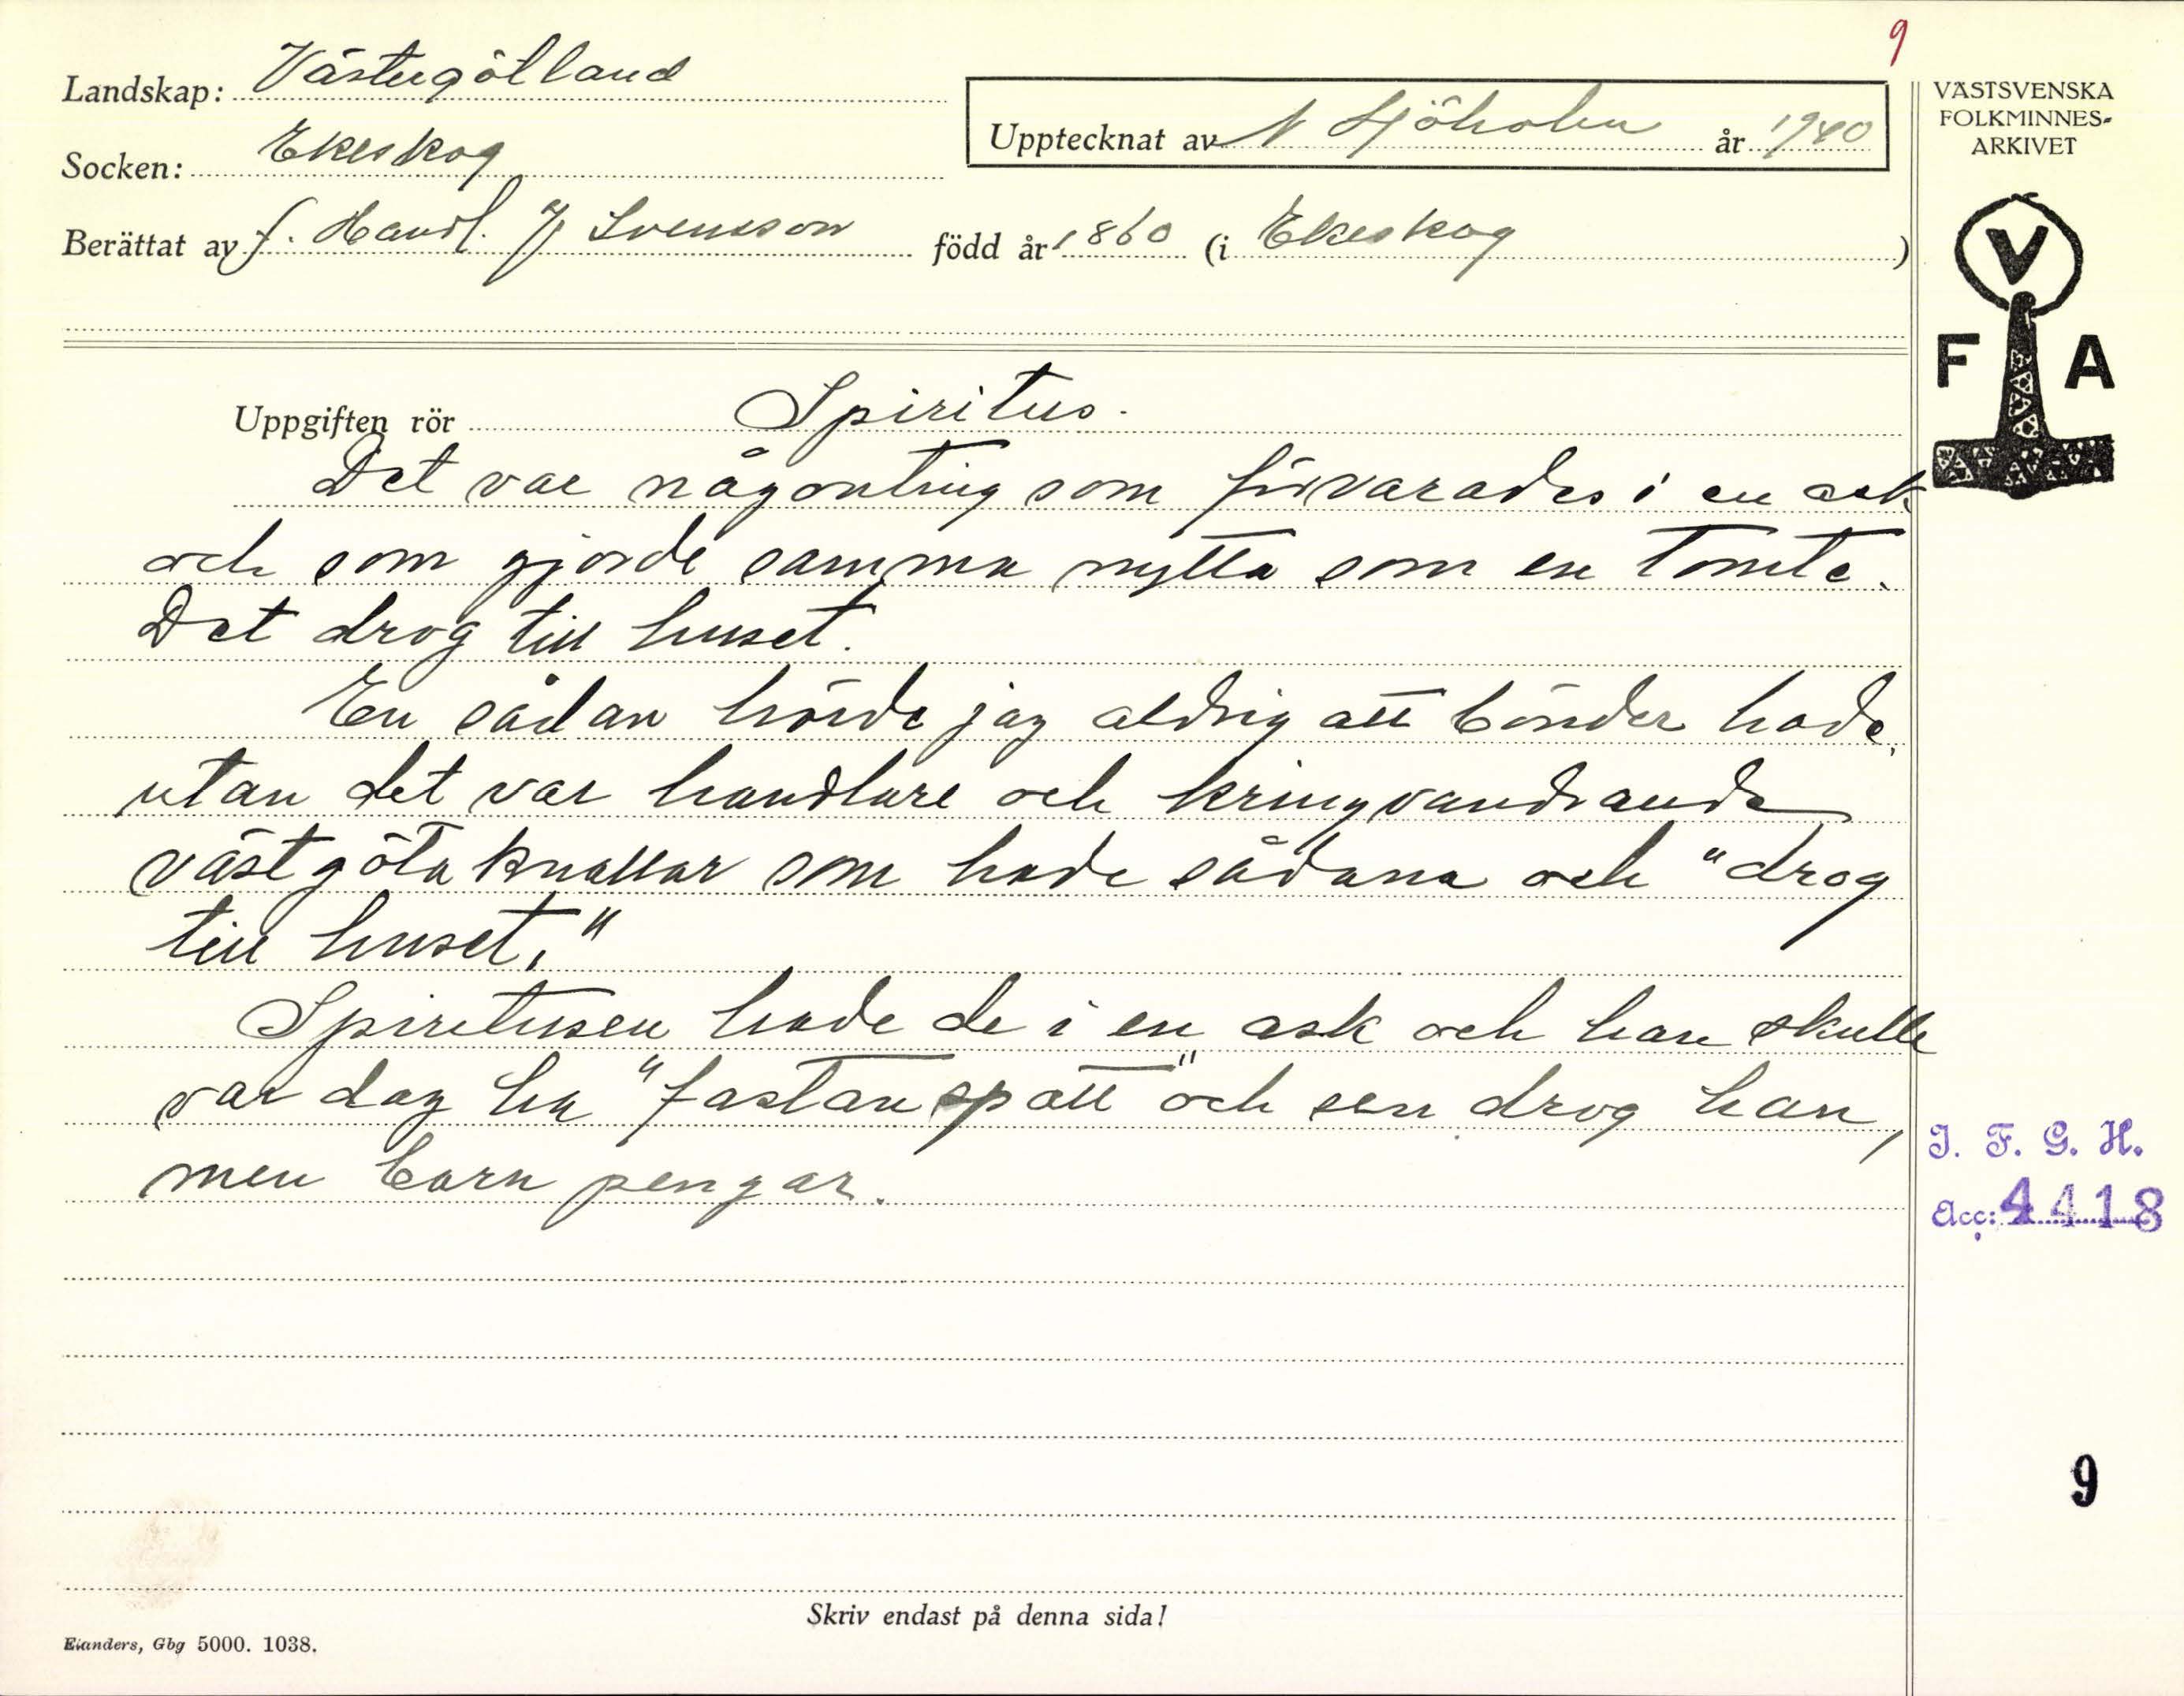 9
Landskap: Västergötland
Socken: Ekeskog
Berättat av f. Handl. J Svensson född år 1860 (i Ekeskog)
Upptecknat av N Sjöholm år 1940
VÄSTSVENSKA
FOLKMINNES-
ARKIVET
V
F A
Uppgiften rör Spiritus.
Det var någonting som förvarades i en ask
och som gjorde samma nytta som en Tomte.
Det drog till huset.
En sådan hörde jag aldrig att bönder hade,
utan det var handlare och kringvandrande
västgötaknallar som hade sådana och "drog
till huset."
Spiritusen hade de i en ask och han skulle
var dag ha "fastan spått" och sen drog han,
men barn pengar.
I. F. G. H.
Acc: 4418
9
Skriv endast på denna sida!
Elanders, Gbg 5000. 1038.